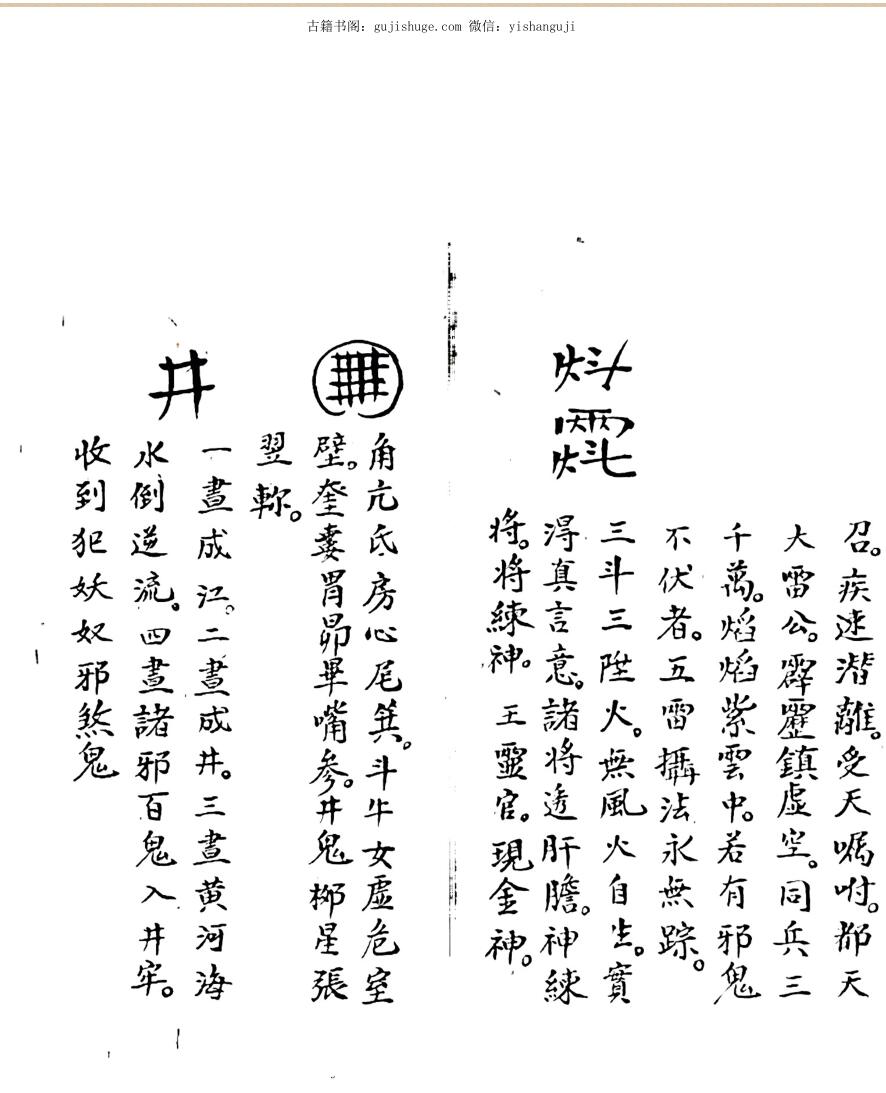 古籍书阁：gujishuge.com 微信：yishanguji
召。疾速潛離。受天嘱咐。都天
大雷公。霹靂鎮虛空。同兵三
千萬。焰焰紫雲中。若有邪鬼
不伏者。五雷攝法永無踪。
三斗三陞火。無風火自生。實
淂真言意。諸将透肝膽。神練
将。将練神。王靈官。現金神。
角亢氐房心尾箕。斗牛女虛危室
壁。奎婁胃昴畢嘴參。井鬼柳星張
翌軫。
井
一畫成江。二畫成井。三畫黄河海
水倒逆流。四畫諸邪百鬼入井牢。
收到犯妖奴邪煞鬼